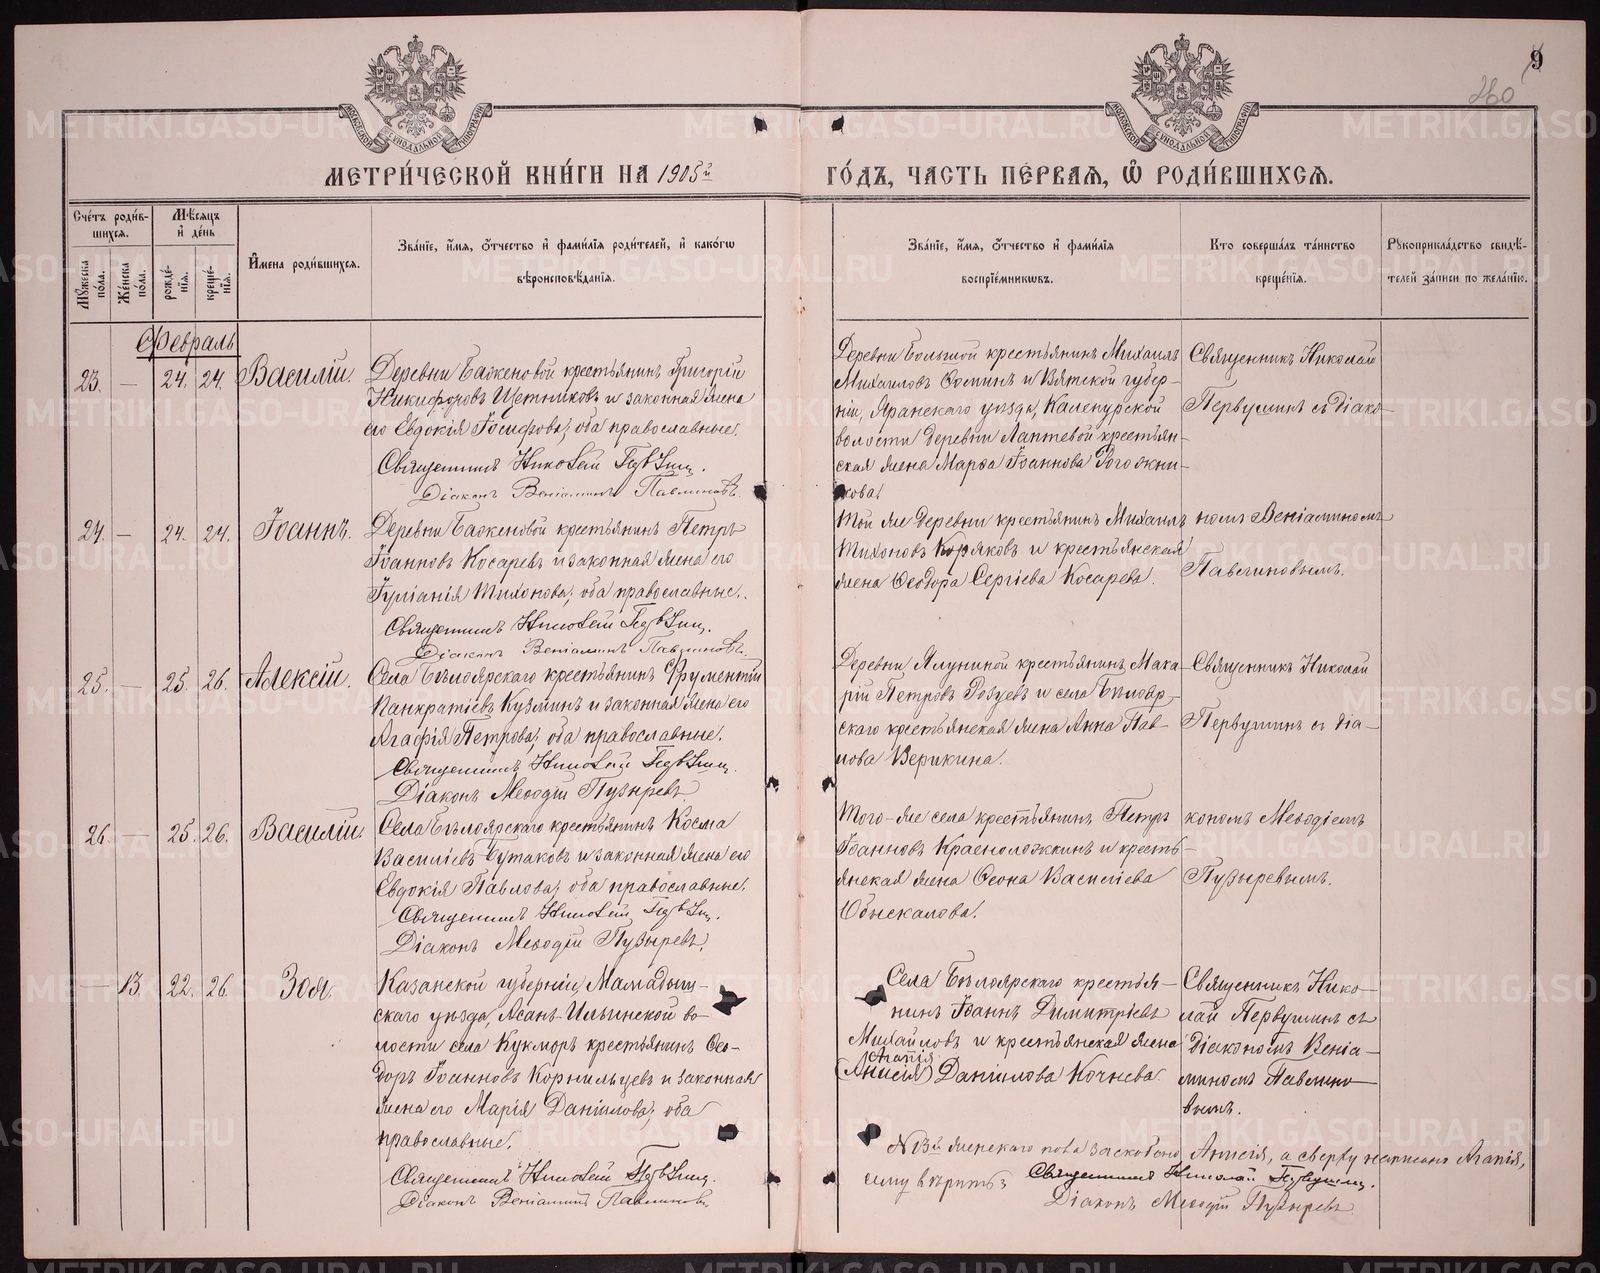 9
260
МЕТРИ́ЧЕСКОЙ КНИ́ГИ НА 1905й
ГО́ДЪ, ЧАСТЬ ПЕ́РВАЯ, Ѽ РОДИ́ВШИХСЯ.
Сче́тъ роди́в-
шихся.
Мѣ́сяцъ
и҆ де́нь
Мꙋ́жеска по́ла.
Же́нска по́ла.
рожде́-нїя.
креще́-нїя.
И҆мена роди́вшихся.
Зва́нїе, и҆́мя, ѻ҆́тчество и҆ фами́лїя роди́телей, и҆ како́гѡ
вѣроисповѣ́данїя.
Зва́нїе, и҆́мя, ѻ҆́тчество и҆ фами́лїя
воспрїе́мникѡвъ.
Кто соверша́лъ та́инство
креще́нїя.
Рꙋкоприкла́дство свидѣ́-
телей за́писи по жела́нїю.
Февраль
23. — 24. 24. Василій.
Деревни Баженовой крестьянинъ Григорій
Никифоровъ Щетниковъ и законная жена
его Евдокія Іосифова, оба православные.
Священникъ Николай Первушинъ.
Діаконъ Веніаминъ Павлиновъ.
Деревни Большой крестьянинъ Михаилъ
Михаиловъ Ѳоминъ и Вятской губер-
ніи, Яранскаго уѣзда,
волости деревни Лаптевой крестьян-
ская жена Марѳа Іоаннова Рогожни-
кова.
Священникъ Николай
Первушинъ съ діако-
24. — 24. 24. Іоаннъ.
Деревни Баженовой крестьянинъ Петръ
Іоанновъ Косаревъ и законная жена его
Іуліанія Тихонова, оба православные.
Священникъ Николай Первушинъ.
Діаконъ Веніаминъ Павлиновъ.
Той же деревни крестьянинъ Михаилъ
Тихоновъ Коряковъ и крестьянская
жена Ѳеодора Сергіева Косарева.
номъ Веніаминомъ
Павлиновымъ.
25. — 25. 26. Алексій.
Села Бѣлоярскаго крестьянинъ Фрументій
Панкратіевъ Кузминъ и законная жена его
Агафія Петрова, оба православные.
Священникъ Николай Первушинъ.
Діаконъ Меѳодій Пузыревъ.
Деревни Ялуниной крестьянинъ Мака-
рій Петровъ и села Бѣлояр-
скаго крестьянская жена Анна Пав-
лова Верикина.
Священникъ Николай
Первушинъ съ діа-
26. — 25. 26. Василій.
Села Бѣлоярскаго крестьянинъ Косма
Василіевъ Бутаковъ и законная жена его
Евдокія Павлова, оба православные.
Священникъ Николай Первушинъ.
Діаконъ Меѳодій Пузыревъ.
Того-же села крестьянинъ Петръ
Іоанновъ Красноложкинъ и кресть-
янская жена Ѳеона Василіева
Обыскалова.
кономъ Меѳодіемъ
Пузыревымъ.
— 13. 22. 26. Зоя.
Казанской губерніи, Мамадыш-
скаго уѣзда, Асанъ-Ильинской во-
лости села Кукморъ крестьянинъ Ѳео-
доръ Іоанновъ Корнильцевъ и законная
жена его Марія Даніилова, оба
православные.
Священникъ Николай Первушинъ.
Діаконъ Веніаминъ Павлиновъ.
Села Бѣлоярскаго крестья-
нинъ Іоаннъ Димитріевъ
Михайловъ и крестьянская жена
Агапія
(Анисія) Даніилова Кочнева.
Священникъ Нико-
лай Первушинъ съ
діакономъ Веніа-
миномъ Павлино-
вымъ.
№ 13й женскаго пола заскоблено Анисія, а сверху написано Агапія,
сему вѣрить
Священникъ Николай Первушинъ.
Діаконъ Меѳодій Пузыревъ.
METRIKI.GASO-URAL.RU